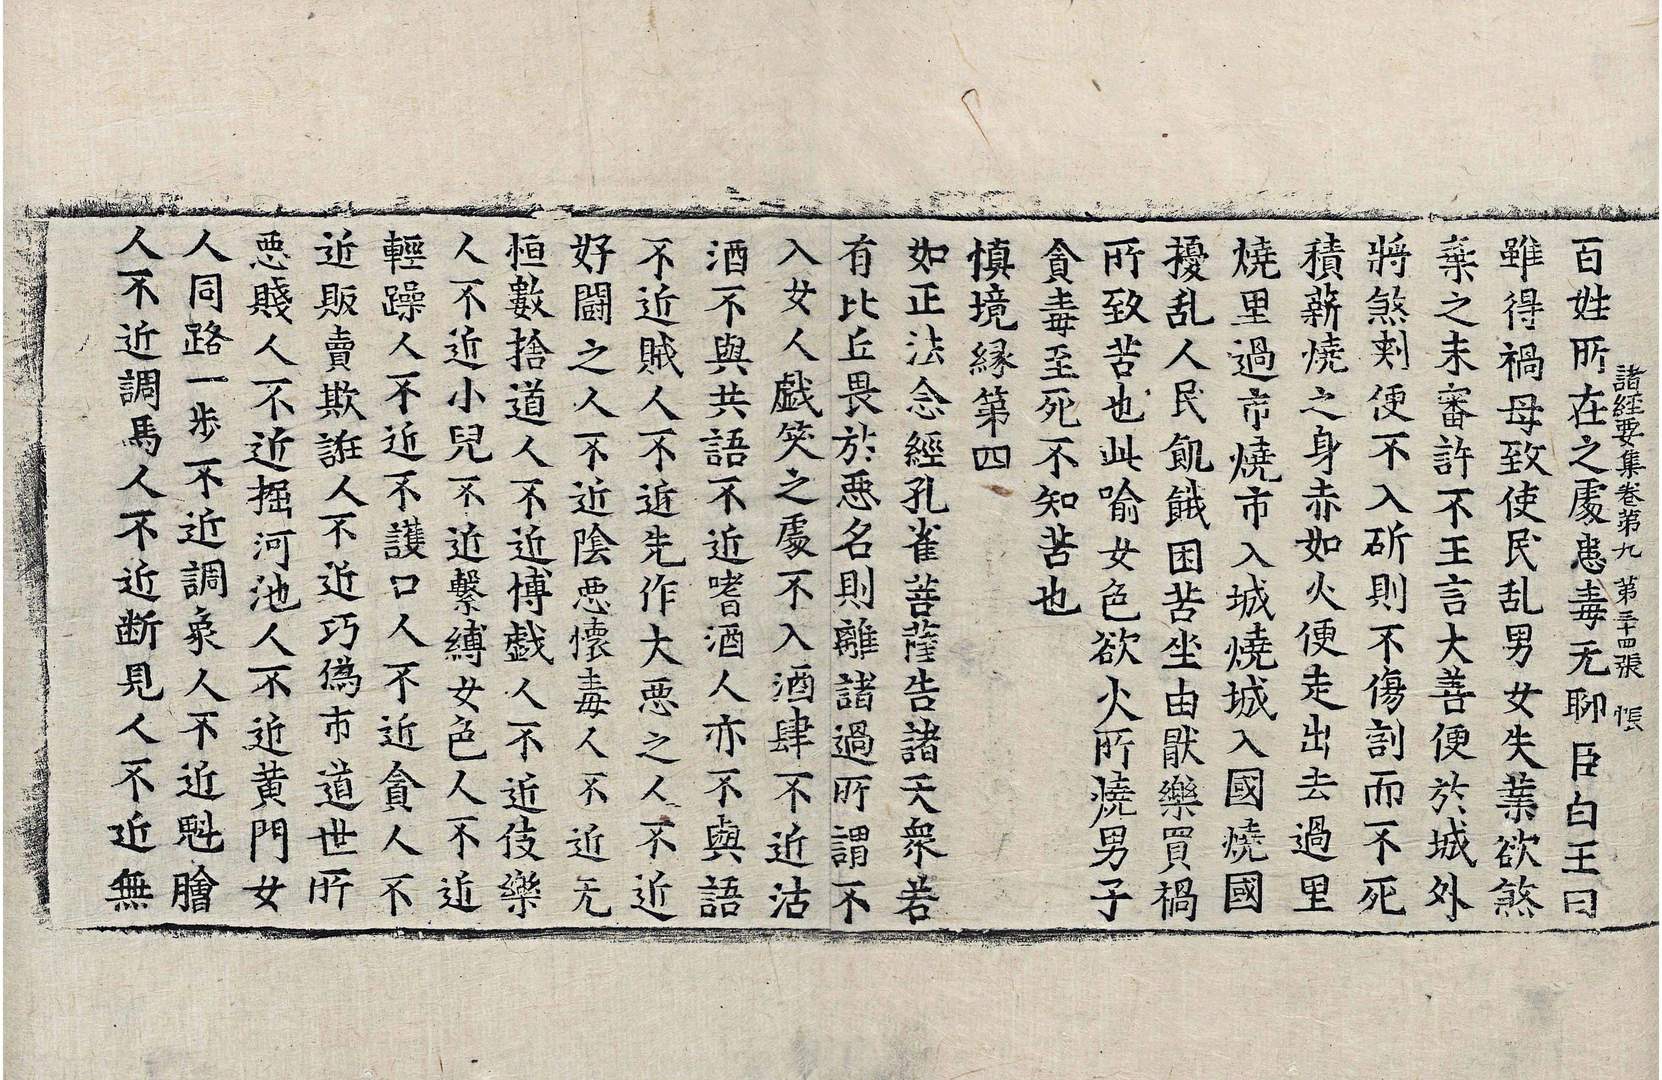 諸經要集卷第九 第三十四張 帳
百姓所在之處患毒无聊臣白王曰
雖得禍母致使民乱男女失業欲煞
棄之未審許不王言大善便於城外
將煞刾便不入斫則不傷剖而不死
積薪燒之身赤如火便走出去過里
燒里過市燒市入城燒城入國燒國
擾乱人民飢餓困苦坐由猒樂買禍
所致苦也此喻女色欲火所燒男子
貪毒至死不知苦也
慎境縁第四
如正法念經孔雀菩薩告諸天衆若
有比丘畏於惡名則離諸過所謂不
入女人戯笑之處不入酒肆不近沽
酒不與共語不近嗜酒人亦不與語
不近賊人不近先作大惡之人不近
好鬪之人不近陰惡懷毒人不近无
恒數捨道人不近博戯人不近伎樂
人不近小兒不近繫縛女色人不近
輕躁人不近不護口人不近貪人不
近販賣欺誑人不近巧偽市道世所
惡賤人不近掘河池人不近黄門女
人同路一步不近調象人不近魁膾
人不近調馬人不近断見人不近無